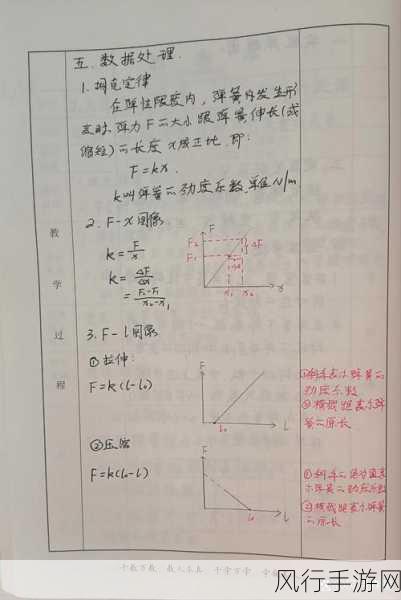 五.数据处理.
1.胡克定律
在弹性限度内,弹簧的发生形
变时.弹力F二大小跟弹簧伸长(或
缩短)二长度x成正比.即:
F=kx.
k叫弹簧二劲度系数.单位N/m
2.F-x图像
k=F/x
k=ΔF/Δx
=F₂-F₁/x₂-x₁
F
F₂
F₁
ΔF
Δx
x₁ x₂ x
3.F-l图像
①拉伸:
F=k(l-l₀)
F
l₀
l
①斜率表示弹簧二
劲度系数
②横截距表示弹
簧二原长
②压缩
F=k(l₀-l)
F
l₀
l
①斜率二绝对值表
示弹簧二劲度系数
②横截距表示弹簧
二原长
教
学
过
程
风行手游网